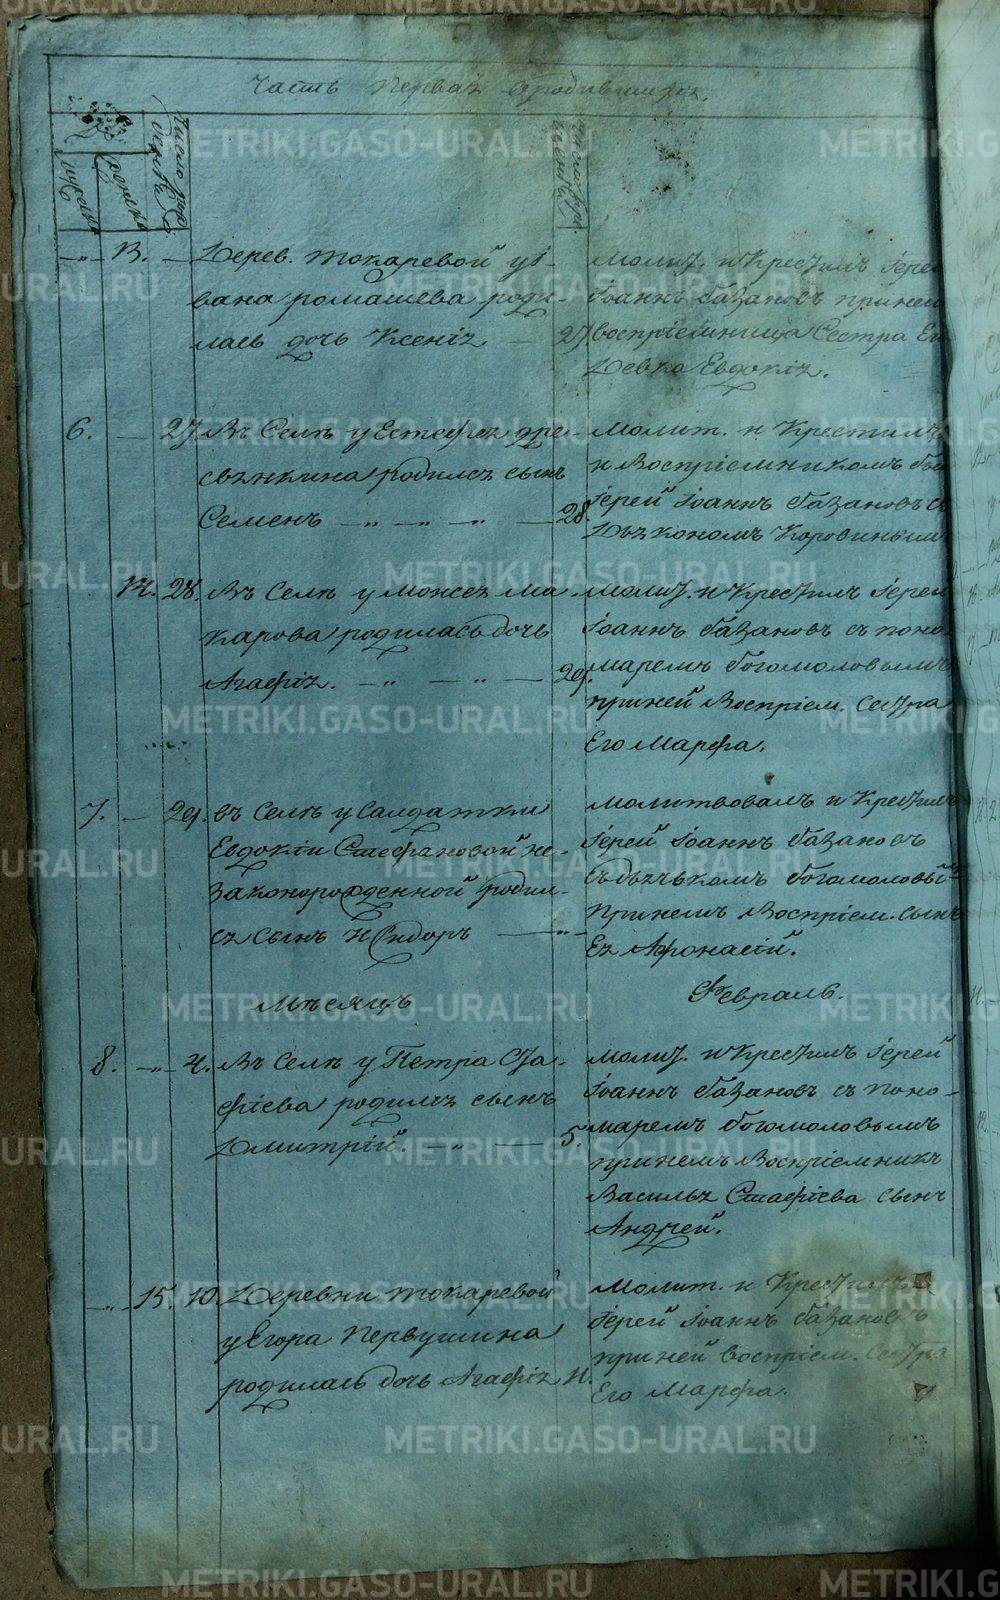 Часть Первая о родившихся.
Число рож
дені́й
мужеск
женск
Число кре
щені́й
„ 13. — Дерев. токаревой у И-
вана ромашева роди-
лась дочь Ксенія — 27
Молит. и Крестилъ Іерей
Іоаннъ Газановъ при ней
воспріемница Сестра Его
Девка Евдокія.
6. — 27. Въ Селѣ у Естефея дре-
свянкина родился сынъ
Семенъ — „ — „ — „ — 28.
Молит. и Крестилъ
и Воспріемникомъ был
Іерей Іоаннъ Газановъ съ
Дьякономъ Коровиным
14. 28. Въ Селѣ у Можея Ма-
карова родилась дочь
Агафія. — „ — „ — 29.
Молит. и Крестилъ Іерей
Іоаннъ Газановъ съ поно-
маремъ Богомоловымъ
при ней Воспріем. Сестра
Его Марфа.
7. — 29. въ Селѣ у Салдатки
Евдокіи Стефановой не-
законорожденной родил-
ся сынъ Ѳиодоръ — „ —
Молитвовалъ и Крестилъ
Іерей Іоаннъ Газановъ
съ дьячькомъ Богомоловы
При немъ Воспріем. сынъ
Ея Афонасій.
Мѣсяцъ
Февраль.
8. — „ — 4. Въ Селѣ у Петра Ста-
фіева родился сынъ
Дмитрій. „ — 5.
Молит. и Крестилъ Іерей
Іоаннъ Газановъ съ Поно-
маремъ Богомоловымъ
при немъ Воспріемникъ
Василья Стафіева сынъ
Андрей.
„ 15. 10. Деревни токаревой
у Егора Первушина
родилась дочь Агафія 11.
Молит. и Крестилъ
Іерей Іоаннъ Газановъ
при ней воспріем. Сестра
Его Марфа.
METRIKI.GASO-URAL.RU